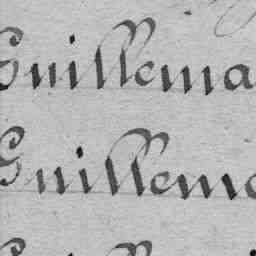 Guillema
Guilleme